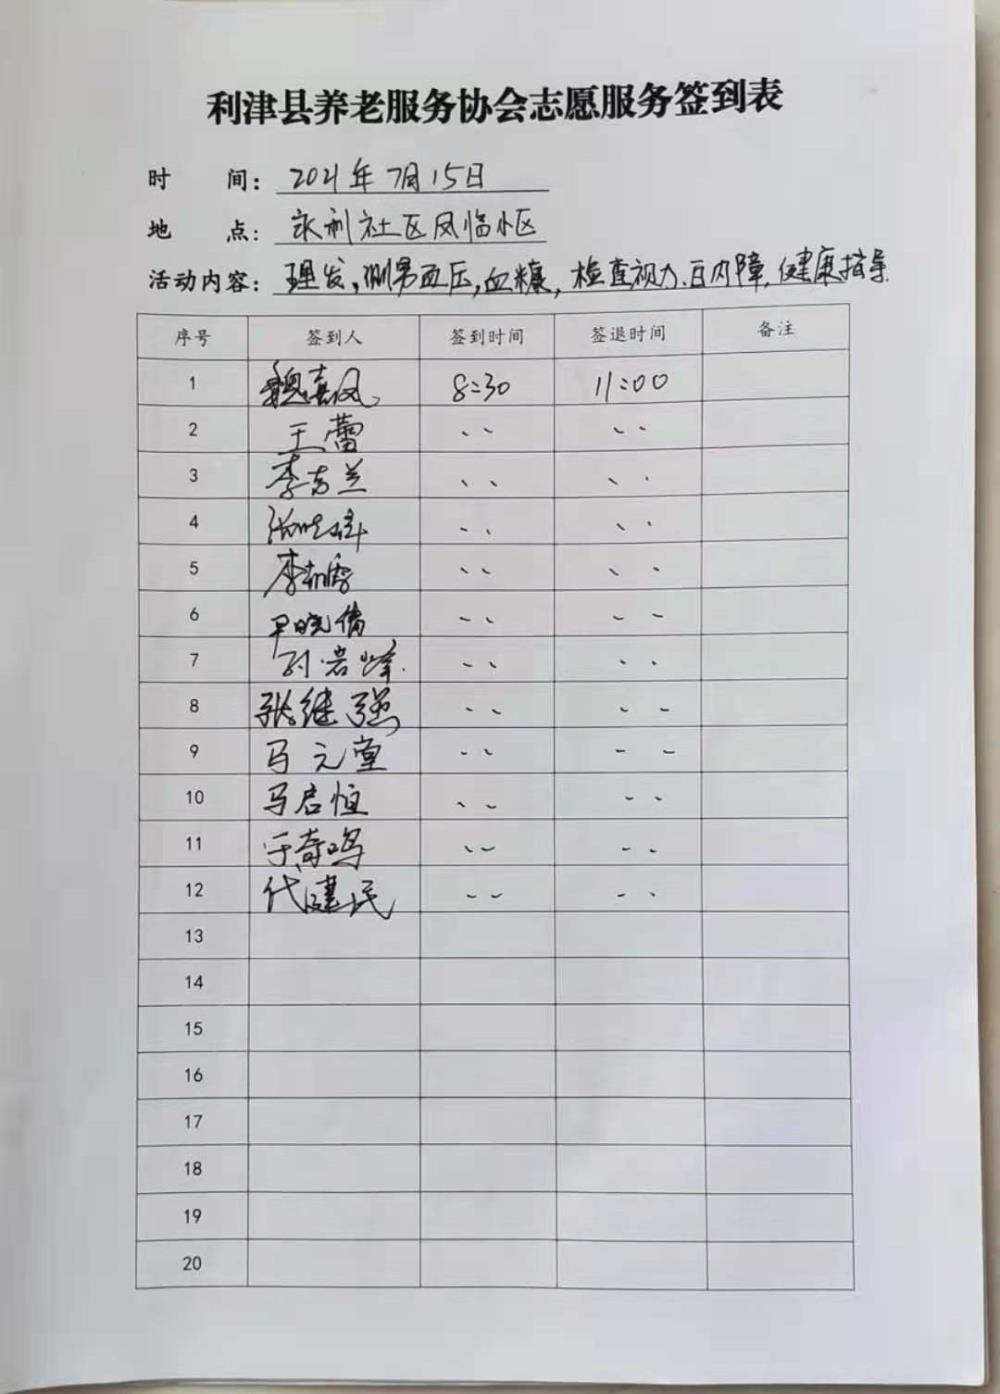 利津县养老服务协会志愿服务签到表
时 间: 2021年7月15日
地 点: 永利社区凤临小区
活动内容: 理发,测量血压,血糖,检查视力.白内障,健康指导.
序号 签到人 签到时间 签退时间 备注
1 魏喜凤 8:30 11:00
2 王蕾 、、 、、
3 李吉兰 、、 、、
4 、、 、、
5 李 、、 、、
6 尹晓倩 、、 、、
7 孙岩峰. 、、 、、
8 张继强 、、 、、
9 马元堂 、、 、、
10 马启恒 、、 、、
11 于奇鸣 、、 、、
12 代建民 、、 、、
13
14
15
16
17
18
19
20